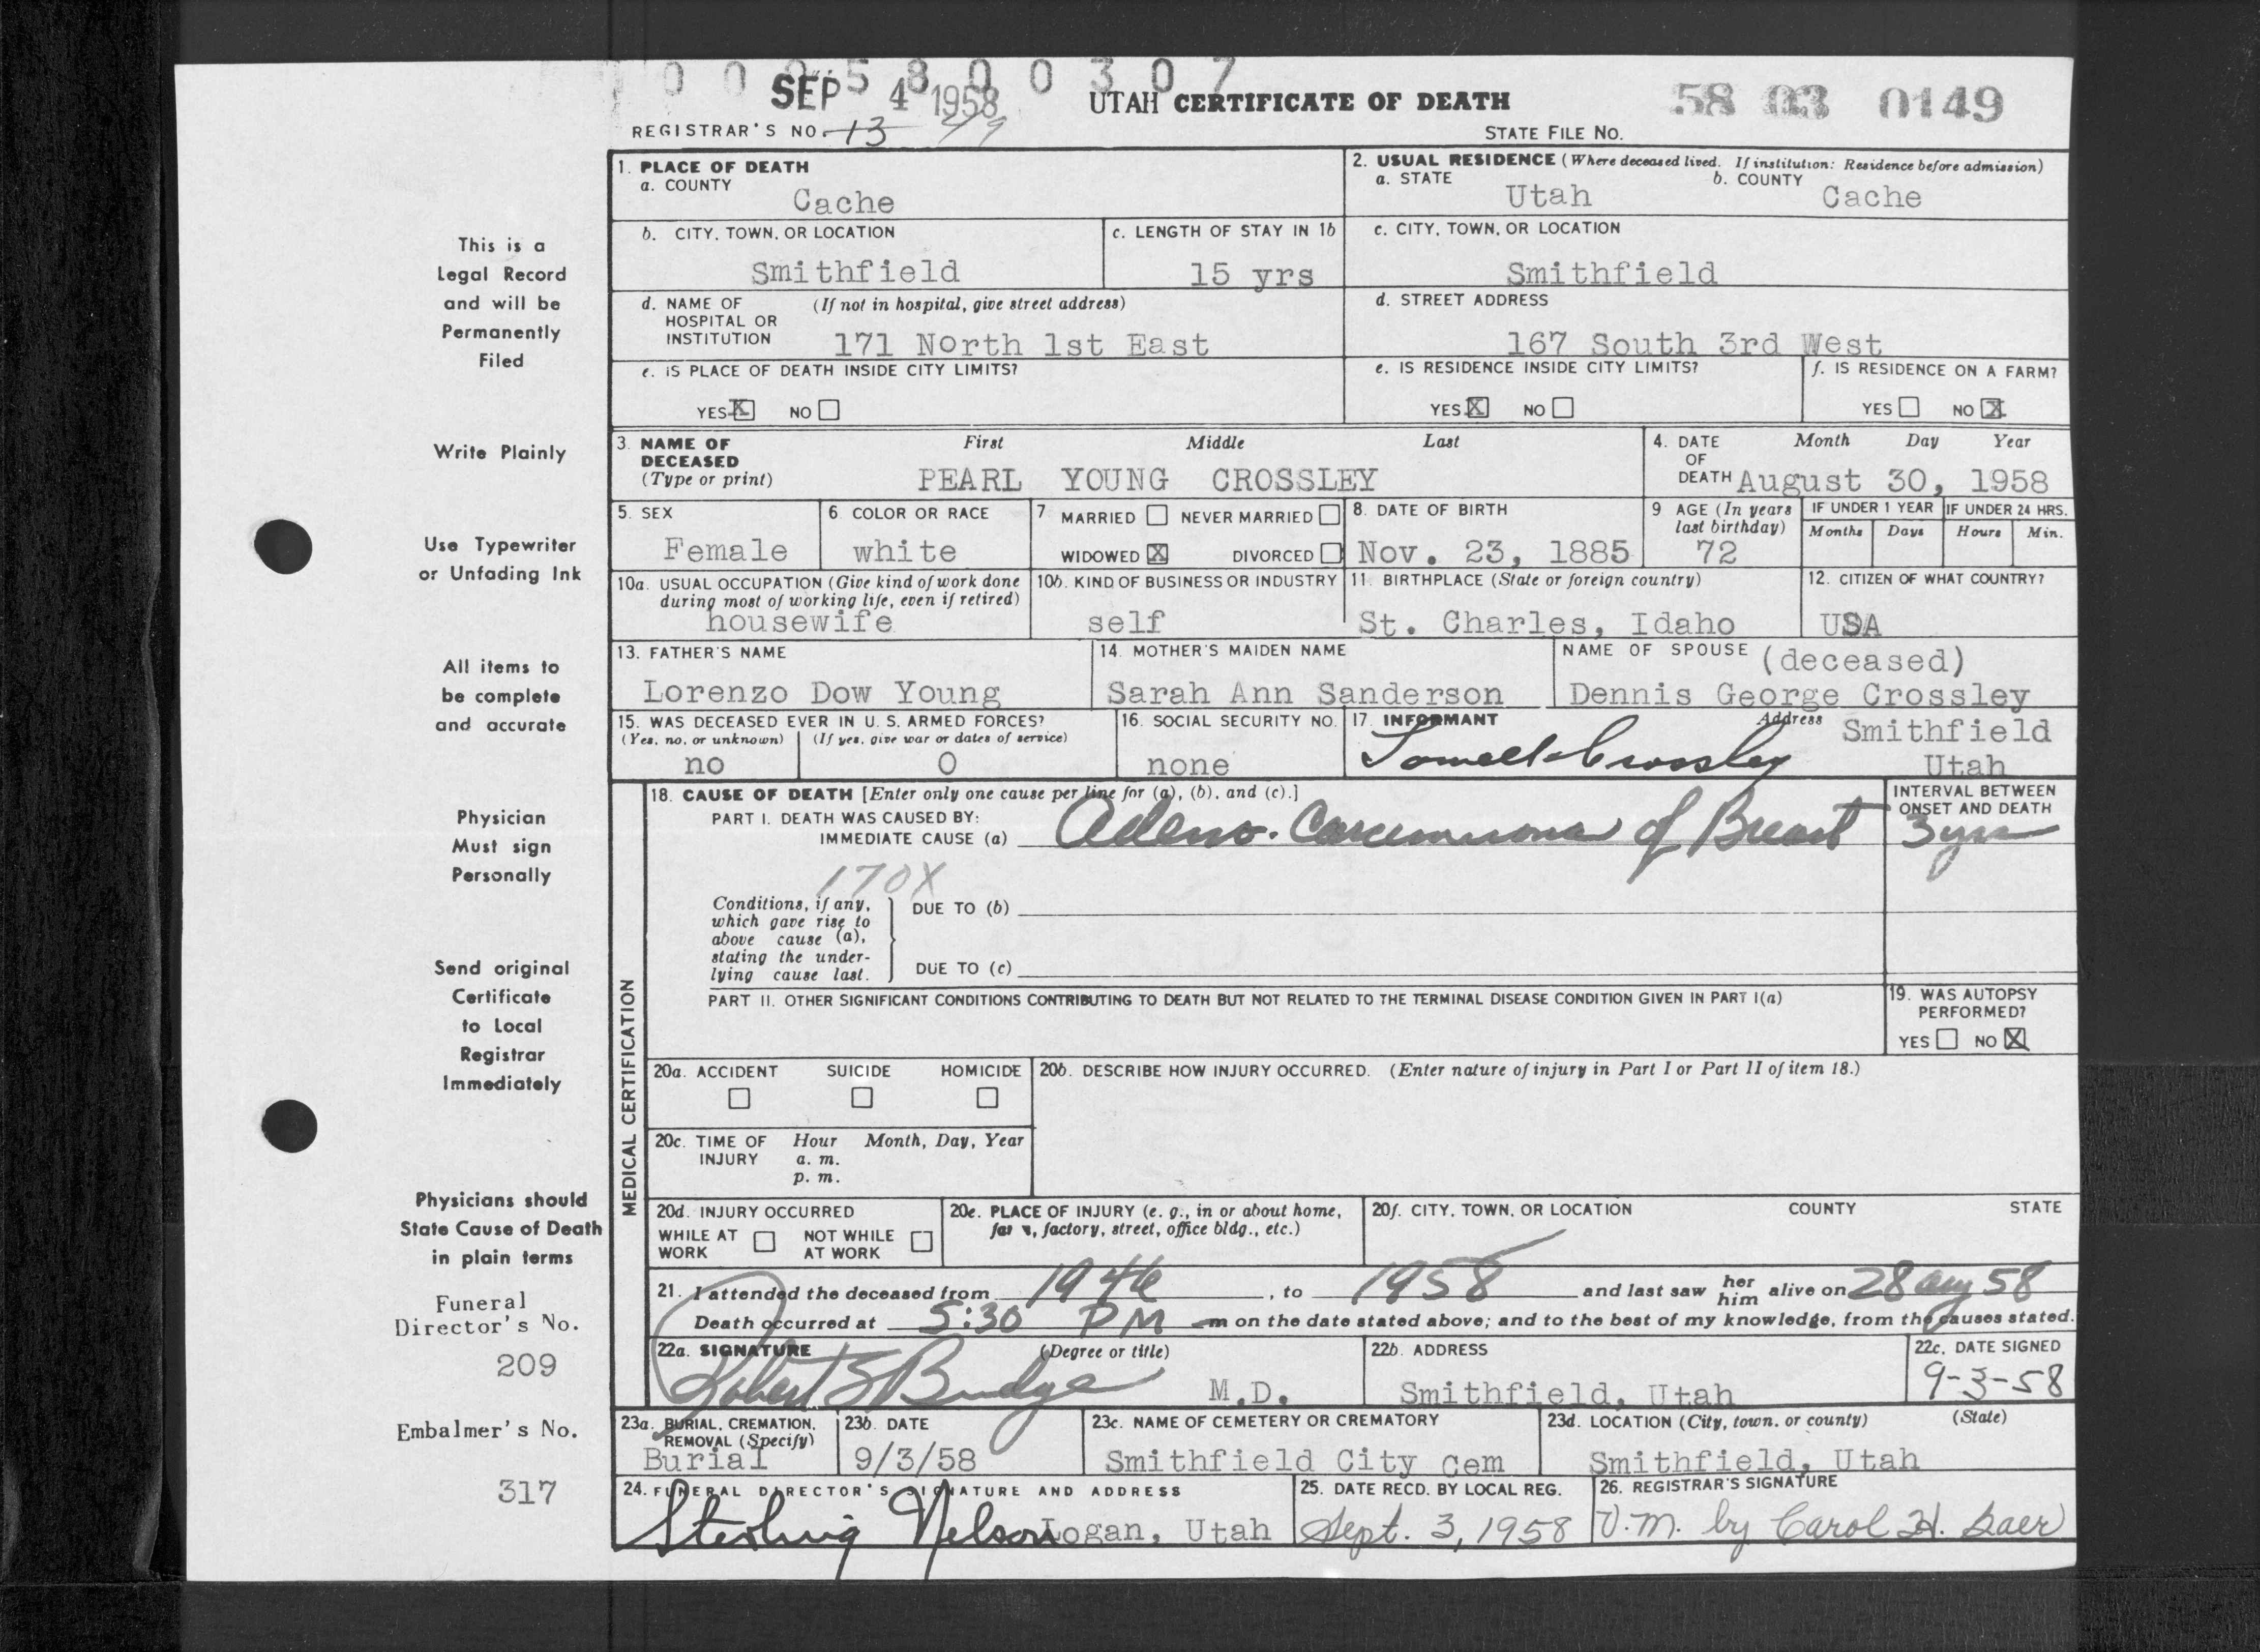 00 5800307
SEP 4 1958
UTAH CERTIFICATE OF DEATH
58 03 0149
REGISTRAR'S NO. 13
STATE FILE NO.
This is a
Legal Record
and will be
Permanently
Filed
Write Plainly
Use Typewriter
or Unfading Ink
All items to
be complete
and accurate
Physician
Must sign
Personally
Send original
Certificate
to Local
Registrar
Immediately
Physicians should
State Cause of Death
in plain terms
Funeral
Director's No.
209
Embalmer's No.
317
1. PLACE OF DEATH
a. COUNTY
Cache
2. USUAL RESIDENCE (Where deceased lived. If institution: Residence before admission)
a. STATE b. COUNTY
Utah Cache
b. CITY, TOWN, OR LOCATION
Smithfield
c. LENGTH OF STAY IN 1b
15 yrs
c. CITY, TOWN, OR LOCATION
Smithfield
d. NAME OF (If not in hospital, give street address)
HOSPITAL OR
INSTITUTION 171 North 1st East
d. STREET ADDRESS
167 South 3rd West
e. IS PLACE OF DEATH INSIDE CITY LIMITS?
YES X NO
e. IS RESIDENCE INSIDE CITY LIMITS?
YES X NO
f. IS RESIDENCE ON A FARM?
YES NO X
3. NAME OF First Middle Last
DECEASED
(Type or print) PEARL YOUNG CROSSLEY
4. DATE Month Day Year
OF
DEATH August 30, 1958
5. SEX
Female
6. COLOR OR RACE
white
7 MARRIED NEVER MARRIED
WIDOWED X DIVORCED
8. DATE OF BIRTH
Nov. 23, 1885
9 AGE (In years
last birthday)
72
IF UNDER 1 YEAR
Months Days
IF UNDER 24 HRS.
Hours Min.
10a. USUAL OCCUPATION (Give kind of work done
during most of working life, even if retired)
housewife
10b. KIND OF BUSINESS OR INDUSTRY
self
11. BIRTHPLACE (State or foreign country)
St. Charles, Idaho
12. CITIZEN OF WHAT COUNTRY?
USA
13. FATHER'S NAME
Lorenzo Dow Young
14. MOTHER'S MAIDEN NAME
Sarah Ann Sanderson
NAME OF SPOUSE (deceased)
Dennis George Crossley
15. WAS DECEASED EVER IN U. S. ARMED FORCES?
(Yes, no, or unknown) (If yes, give war or dates of service)
no 0
16. SOCIAL SECURITY NO.
none
17. INFORMANT Address
Lowell Crossley Smithfield
Utah
MEDICAL CERTIFICATION
18. CAUSE OF DEATH [Enter only one cause per line for (a), (b), and (c).]
PART I. DEATH WAS CAUSED BY:
IMMEDIATE CAUSE (a) Adeno-Carcinoma of Breast
INTERVAL BETWEEN
ONSET AND DEATH
3 yrs
170X
Conditions, if any,
which gave rise to
above cause (a),
stating the under-
lying cause last.
DUE TO (b)
DUE TO (c)
PART II. OTHER SIGNIFICANT CONDITIONS CONTRIBUTING TO DEATH BUT NOT RELATED TO THE TERMINAL DISEASE CONDITION GIVEN IN PART I(a)
19. WAS AUTOPSY
PERFORMED?
YES NO X
20a. ACCIDENT SUICIDE HOMICIDE
20b. DESCRIBE HOW INJURY OCCURRED. (Enter nature of injury in Part I or Part II of item 18.)
20c. TIME OF Hour Month, Day, Year
INJURY a. m.
p. m.
20d. INJURY OCCURRED
WHILE AT NOT WHILE
WORK AT WORK
20e. PLACE OF INJURY (e. g., in or about home,
farm, factory, street, office bldg., etc.)
20f. CITY, TOWN, OR LOCATION COUNTY STATE
21. I attended the deceased from 1946, to 1958 and last saw her him alive on 28 Aug 58
Death occurred at 5:30 PM m on the date stated above; and to the best of my knowledge, from the causes stated.
22a. SIGNATURE (Degree or title)
Robert S Budge M.D.
22b. ADDRESS
Smithfield, Utah
22c. DATE SIGNED
9-3-58
23a. BURIAL, CREMATION,
REMOVAL (Specify)
Burial
23b. DATE
9/3/58
23c. NAME OF CEMETERY OR CREMATORY
Smithfield City Cem
23d. LOCATION (City, town, or county) (State)
Smithfield, Utah
24. FUNERAL DIRECTOR'S SIGNATURE AND ADDRESS
Sterling Nelson Logan, Utah
25. DATE RECD. BY LOCAL REG.
Sept. 3, 1958
26. REGISTRAR'S SIGNATURE
V.M. by Carol H. Baer